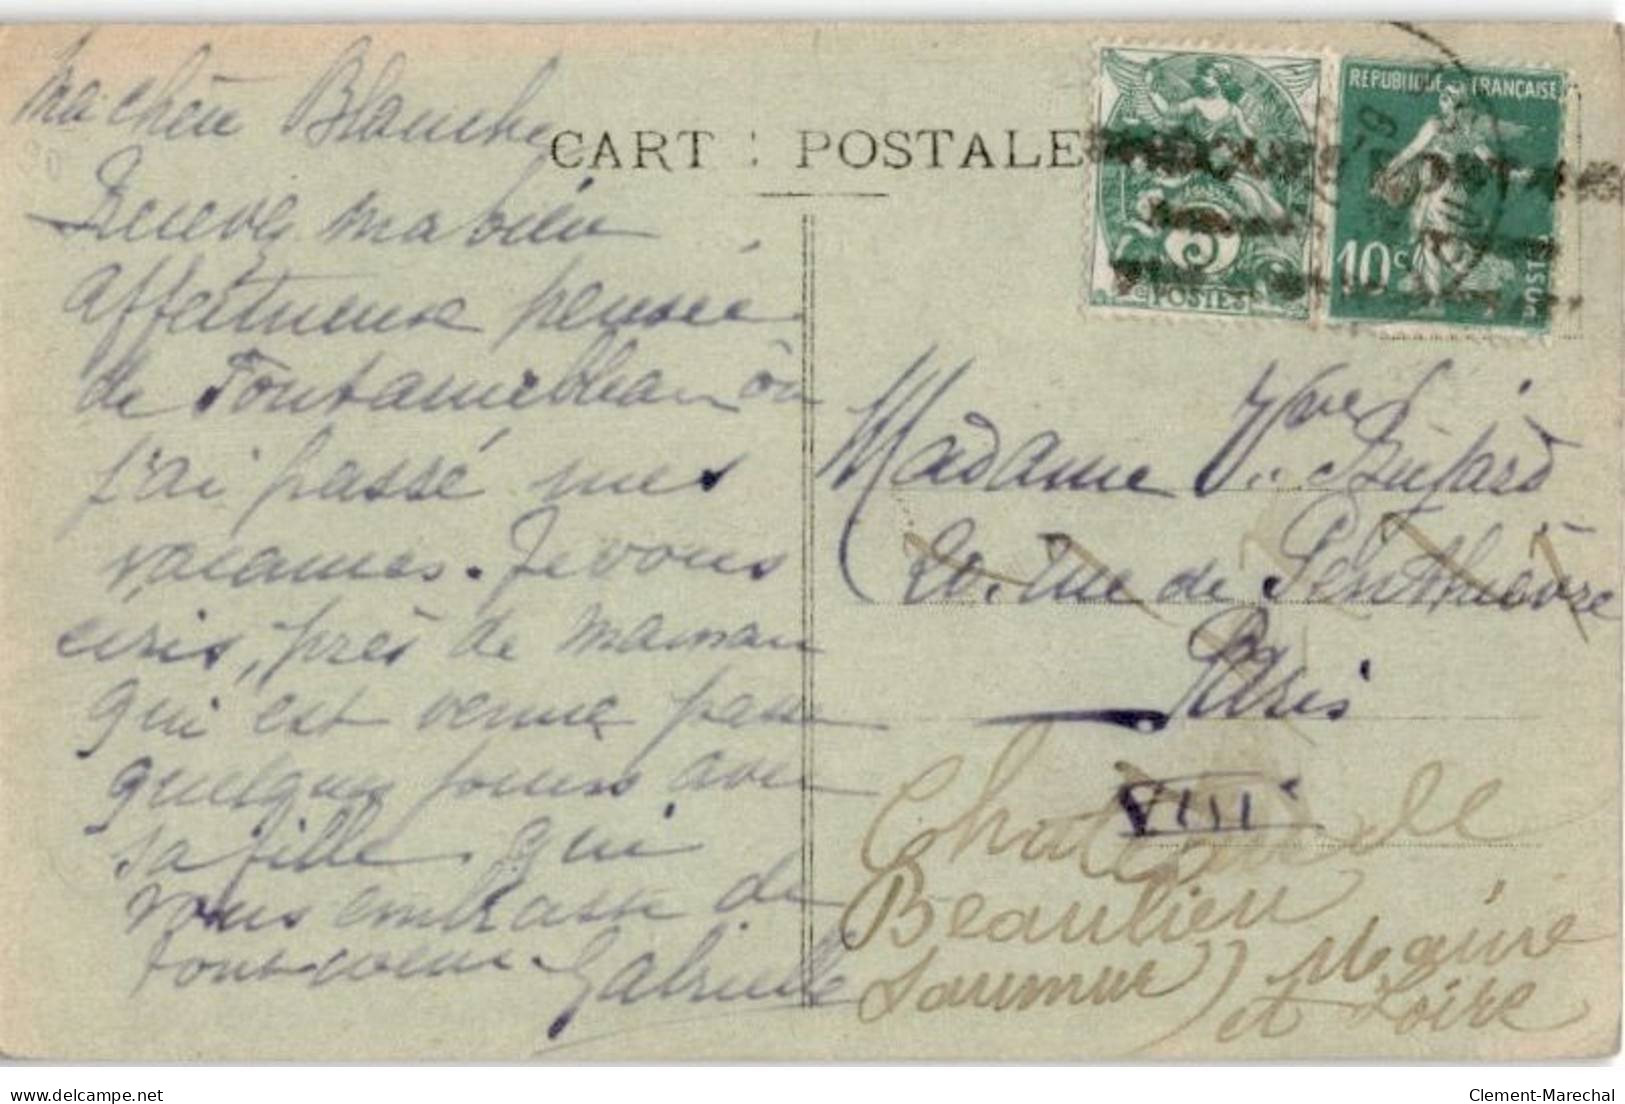 Ma chère Blanche
Recevez ma bien
affectueuse pensée
de Fontainebleau où
j'ai passé mes
vacances. Je vous
écris, près de maman
qui est venue passer
quelques jours avec
sa fille qui
vous embrasse de
tout coeur.
Gabrielle
CART : POSTALE
5
c POSTES
REPUBLIQUE FRANÇAISE
10 c
POSTES
Madame Vve
20. rue de Penthièvre
Paris
VIII
Chateau de
Beaulieu
Saumur) Maine
et Loire
delcampe.net
Clement-Marechal